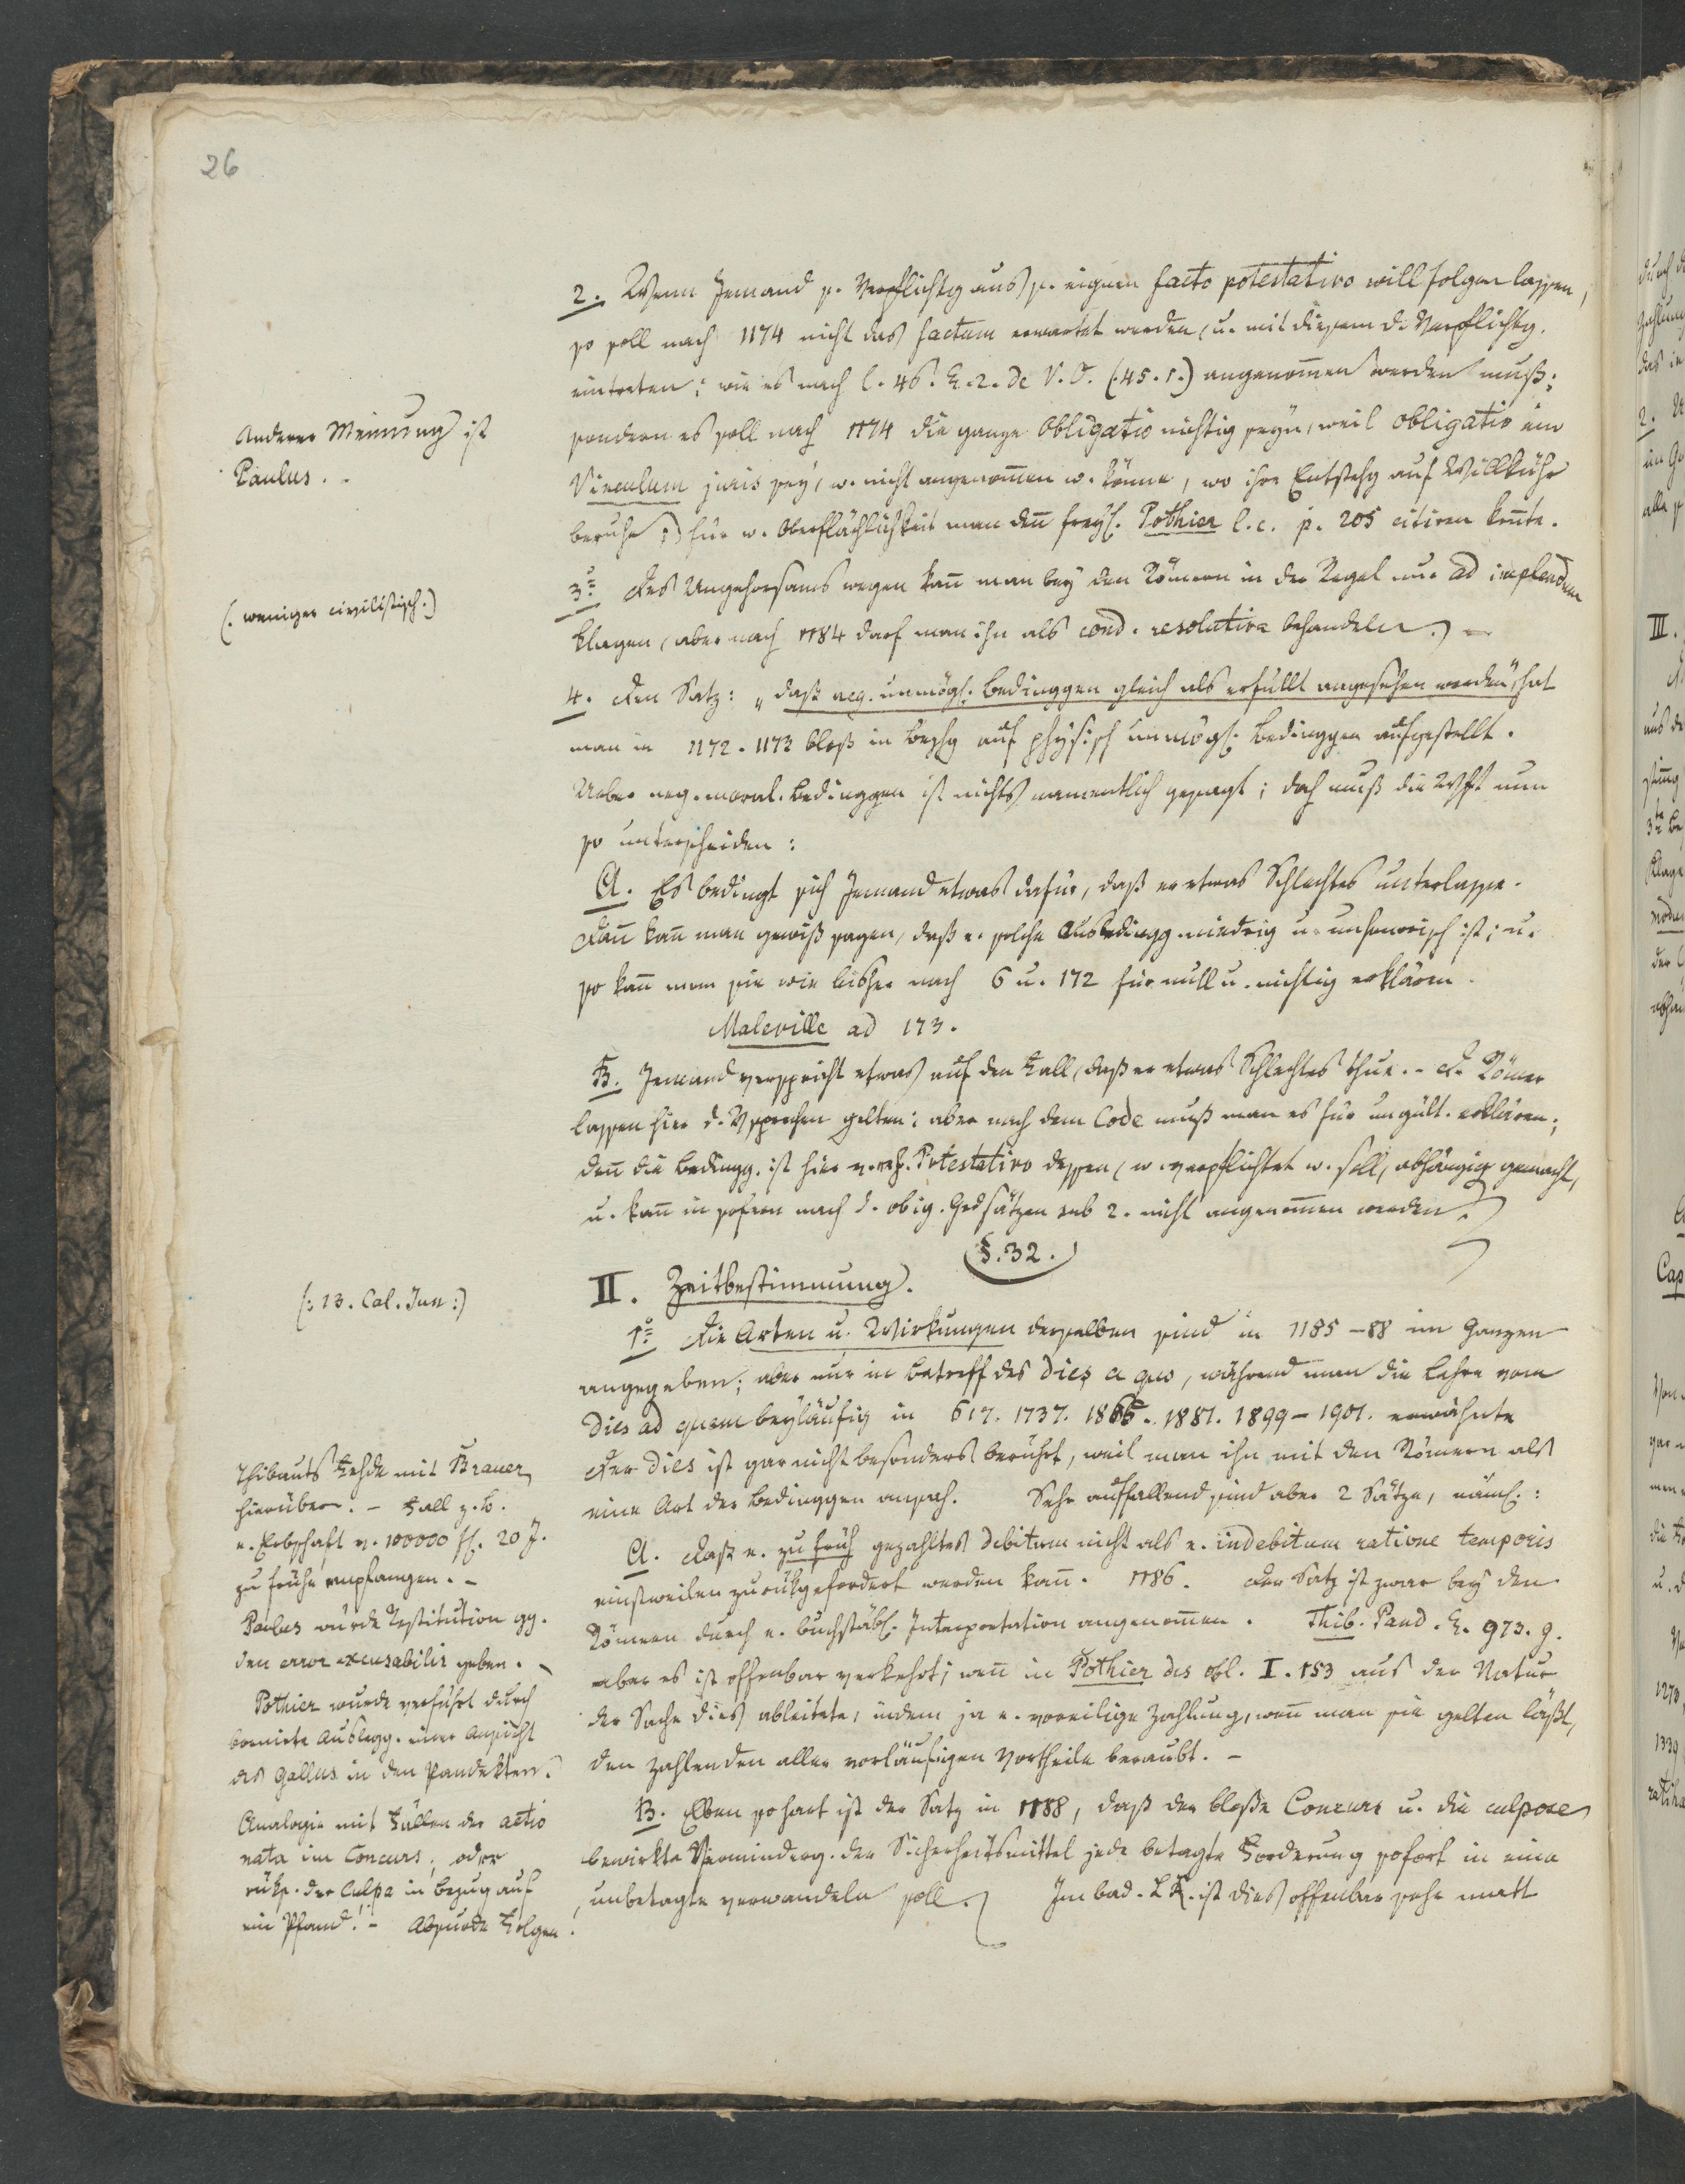 26
2. Wenn Jemand s. Verpflichtg aus s. eignen facto potestativo will folgen lassen,
so soll nach 1174 nicht das factum erwartet werden, u. mit diesem d. Verpflichtg.
eintreten; wie es nach l. 46. §. 2. de V. O. (45. 1.) angenom̄en werden muß;
sondern es soll nach 1174 die ganze Obligatio nichtig seyn, weil obligatio ein
Vinculum juris sey, w. nicht angenom̄en w. könne, wo ihre Entstehg auf Willkühr
beruhe; für w. Oberflächlichkeit man den̄ freyl. Pothier l. c. p. 205 citiren kon̄te.
Anderer Meinung ist
Paulus.
3. Des Ungehorsams wegen kan̄ man bey den Römern in der Regel nur ad implendum
klagen, aber nach 1184 darf man ihn als cond. resolutiva behandeln.
(: weniger civilistisch :)
4. Den Satz: „daß neg. unmögl. Bedinggen gleich als erfüllt angesehen werden“, hat
man in 1172. 1173 bloß in Bezhg auf physisch unmögl. Bedinggen aufgestellt.
Ueber neg. moral. Bedinggen ist nichts namentlich gesagt; doch muß die Wsft nun
so unterscheiden:
A. Es bedingt sich Jemand etwas dafür, daß er etwas Schlechtes unterlasse.
Dan̄ kan̄ man gewiß sagen, daß e. solche Ausbedingg. niedrig u. unhonorisch ist; u.
so kan̄ man sie wie bisher nach 6 u. 172 für null u. nichtig erklären.
Maleville ad 173.
B. Jemand verspricht etwas auf den Fall, daß er etwas Schlechtes thue. - D. Römer
lassen hier d. Vsprechen gelten; aber nach dem Code muß man es für ungült. erklären;
den̄ die Bedingg. ist hier v. Potestativo dessen, w. verpflichtet w. soll, abhängig gemacht,
u. kan̄ in sofern nach d. obig. Grdsätzen sub 2. nicht angenom̄en werden.
§. 32.
II. Zeitbestimmung.
(: 13. Cal. Jun :)
1. Die Arten u. Wirkungen derselben sind in 1185 - 88 im Ganzen
angegeben; aber nur in Betreff des dies a quo, während man die Lehre vom
dies ad quem beyläufig in 617. 1737. 1865. 1881. 1899 - 1901. erwähnte
Der dies ist gar nicht besonders berührt, weil man ihn mit den Römern als
eine Art der Bedinggen ansah. Sehr auffallend sind aber 2 Sätze, näml.:
A. Daß e. zu früh gezahltes debitum nicht als e. indebitum ratione temporis
einstweilen zurükgefordert werden kan̄. 1186. Der Satz ist zwar bey den
Römern durch e. buchstäbl. Interpretation angenom̄en. Thib. Pand. §. 973. g.
aber es ist offenbar verkehrt, wen̄ in Pothier des obl. I. 153 aus der Natur
der Sache dies ableitete, indem ja e. voreilige Zahlung, wen̄ man sie gelten läßt,
den Zahlenden aller vorläufigen Vortheile beraubt. -
Thibauts Fehde mit Brauer
hierüber. - Fall z. B.
e. Erbschaft v. 100000 fl. 20 J.
zu frühe empfangen. -
Paulus würde Restitution gg.
den error excusabilis geben. -
Pothier wurde verführt durch
bornirte Auslegg. einer Ansicht
des Gallus in den Pandekten.
B. Eben so hart ist der Satz in 1188, daß der bloße Concurs u. die culpose
bewirkte Verminderg. der Sicherheitsmittel jede betagte Forderung sofort in eine
unbetagte verwandeln soll. Im bad. L R. ist dies offenbar sehr matt
Analogie mit Fällen der actio
nata im Concurs, oder
rüks. der Culpa in Bezug auf
ein Pfand. - Absurde Folgen.